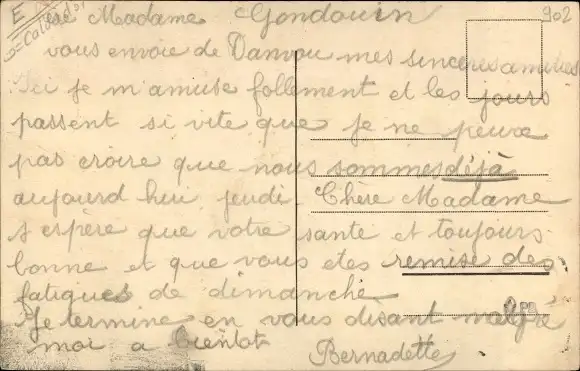 E
=Calvados
902
Madame Gondouin
vous envoie de Danvou mes sincères amitiés
Ici je m'amuse follement et les jours
passent si vite que je ne peux
pas croire que nous sommes déjà
aujourd hui jeudi. Chère Madame
j espère que votre santé et toujours
bonne et que vous etes remise des
fatigues de dimanche
Je termine en vous disant malgré
moi a bientôt
Bernadette